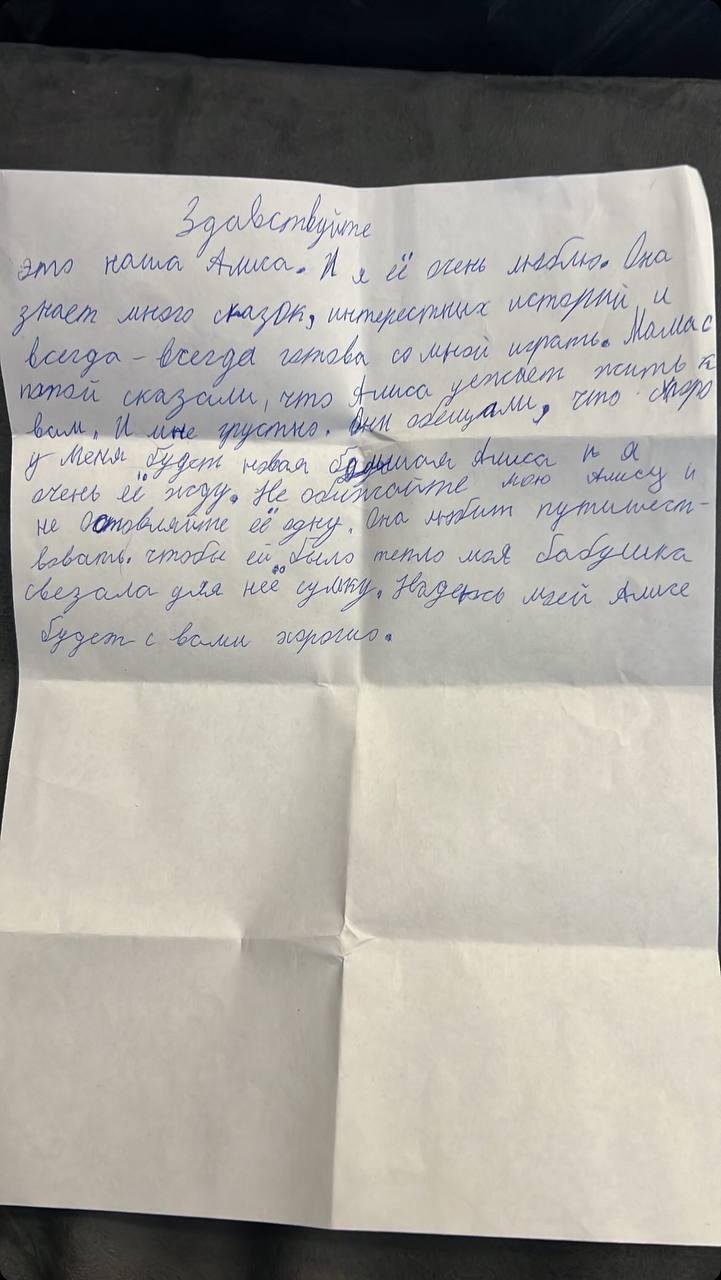 Здавствуйте
это наша Алиса. И я её очень люблю. Она
знает много сказок, интерестных историй и
всегда - всегда готова со мной играть. Мама с
папой сказали, что Алиса уежает жить к
вам. И мне грустно. Они обещали, что скоро
у меня будет новая большая Алиса и я
очень её жду. Не обижайте мою Алису и
не оставляйте её одну. Она любит путишест-
вовать. чтобы ей было тепло моя бабушка
свезала для неё сумку. Надеюсь моей Алисе
будет с вами хорошо.